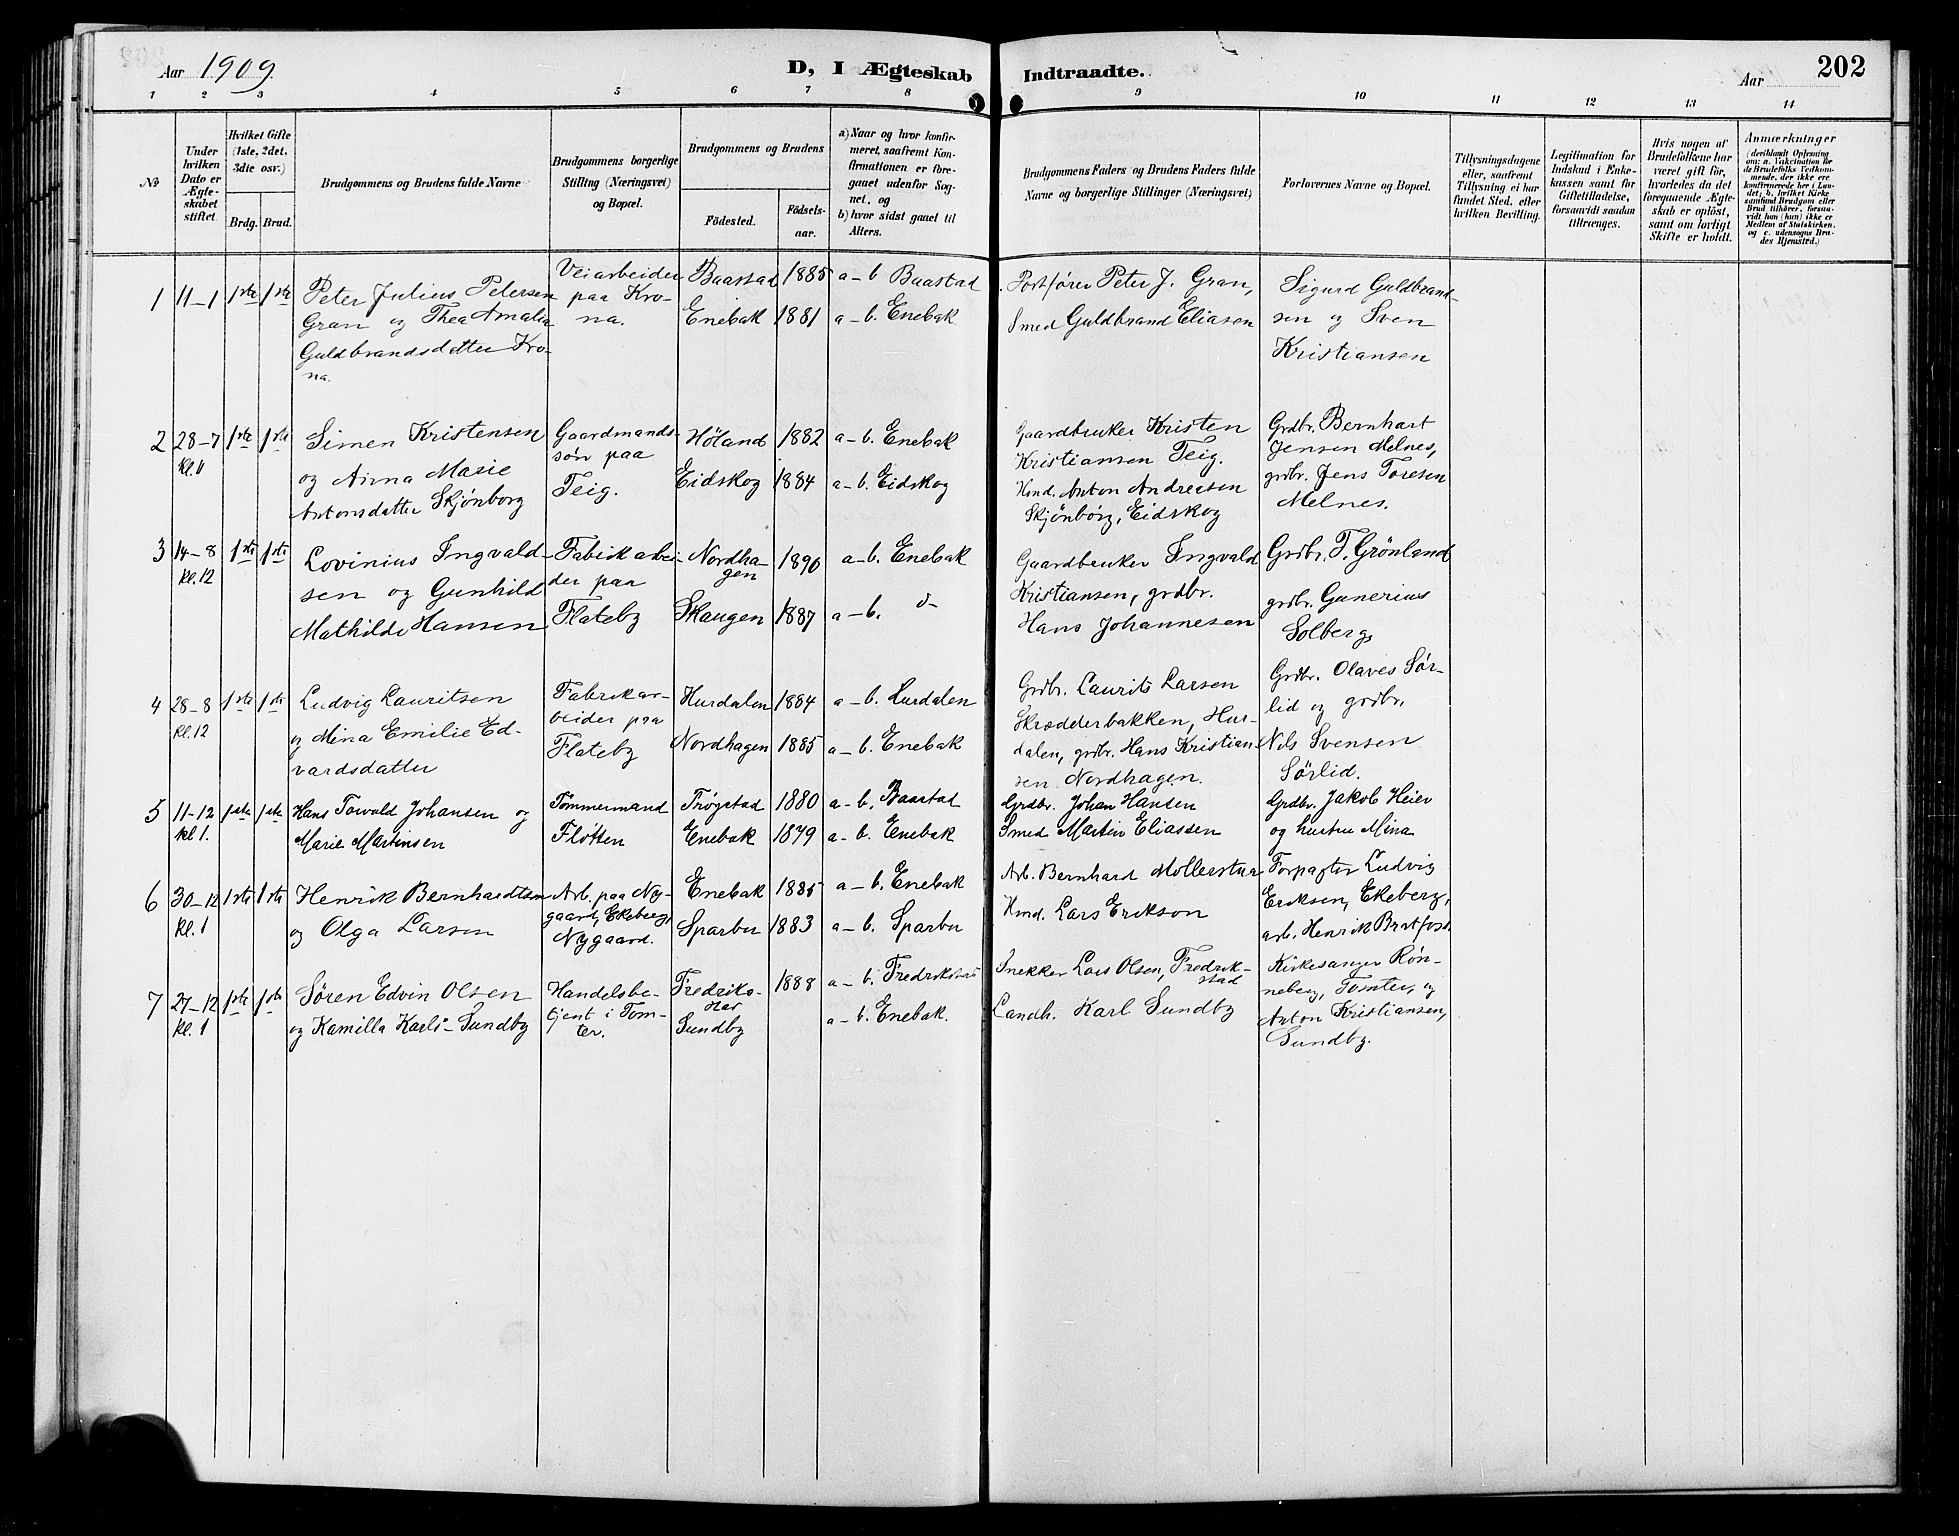 Aar 1909
D, I Ægteskab Indtraadte.
Aar
202
1 2 3 4 5 6 7 8 9 10 11 12 13 14
No
Under
hvilken
Dato er
Ægte-
skabet
stiftet.
Hvilket Gifte
(1ste, 2det,
3die osv.)
Brdg. Brud.
Brudgommens og Brudens fulde Navne
Brudgommens borgerlige
Stilling (Næringsvei)
og Bopæl.
Brudgommens og Brudens
Fødested.
Fødsels-
aar.
a) Naar og hvor konfir-
meret, saafremt Kon-
firmationen er fore-
gaaet udenfor Sog-
net, og
b) hvor sidst gaaet til
Alters.
Brudgommens Faders og Brudens Faders fulde
Navne og borgerlige Stillinger (Næringsvei)
Forlovernes Navne og Bopæl.
Tillysningsdagene
eller, saafremt
Tillysning ei har
fundet Sted, efter
hvilken Bevilling.
Legitimation for
Indskud i Enke-
kassen samt for
Giftetilladelse,
forsaavidt saadan
tiltrænges.
Hvis nogen af
Brudefolkene har
været gift før,
hvorledes da det
foregaaende Ægte-
skab er opløst,
samt om lovligt
Skifte er holdt.
Anmærkninger
(deriblandt Oplysning
om: a. Vakcination for
de Brudefolks Vedkom-
mende, der ikke ere
konfirmerede her i Lan-
det; b. hvilket Kirke-
samfund Brudgom eller
Brud tilhører, forsaa-
vidt han (hun) ikke er
Medlem af Statskirken,
og c. udensogns Bru-
des Hjemsted.)
1 11-1 1ste 1ste
Peter Julius Petersen
Gran og Thea Amalia
Guldbrandsdatter Kro-
na.
Veiarbeider
paa Kro-
na.
Baastad 1885 a-b Baastad
Enebak 1881 a-b. Enebak
Postfører Peter J. Gran,
Smed Guldbrand Eliasen
Sigurd Guldbrand-
sen og Sven
Kristiansen
2 28-7 1ste 1ste
kl. 11
Simen Kristensen
og Anna Marie
Antonsdatter Skjønborg
Gaardmands-
søn paa
Teig.
Høland 1882 a-b. Enebak
Eidskog 1884 a-b. Eidskog
Gaardbruker Kristen
Kristiansen Teig.
Hmd. Anton Andreesen
Skjønborg, Eidskog
Grdbr. Bernhart
Jensen Melnes,
grdbr. Jens Toresen
Melnes.
3 14-8 1ste 1ste
kl. 12
Lovinius Ingvald-
sen og Gunhild
Mathilde Hansen
Fabrikarbei-
der paa
Flateby
Nordha-
gen 1890 a-b. Enebak
Skaugen 1887 a-b. d-
Gaardbruker Ingvald
Kristiansen, grdbr.
Hans Johannesen
Grdbr. T. Grønland
grdbr. Gunerius
Solberg
4 28-8 1ste 1ste
kl. 12
Ludvig Lauritsen
og Mina Emilie Ed-
vardsdatter
Fabrikar-
beider paa
Flateby
Hurdalen 1884 a-b. Hurdalen
Nordhagen 1885 a-b. Enebak
Grdbr. Laurits Larsen
Skrædderbakken, Hur-
dalen, grdbr. Hans Kristian-
sen Nordhagen.
Grdbr. Olaves Sør-
lid og grdbr.
Nils Svensen
Sørlid.
5 11-12 1ste 1ste
kl 1.
Hans Torvald Johansen og
Marie Martinsen
Tømmermand
Fløtten
Trøgstad 1880 a-b. Baastad
Enebak 1879 a-b. Enebak
Grdbr. Johan Hansen
Smed Martin Eliassen
Grdbr. Jakob Heier
og hustru Mina
6 30-12 1ste 1ste
kl. 1
Henrik Bernhardtsen
og Olga Larsen
Arb. paa Ny-
gaard, Ekeberg,
Nygaard.
Enebak 1885 a-b. Enebak
Sparbu 1883 a-b. Sparbu
Arb. Bernhard Mollerstu
Hmd. Lars Erikson
Forpagter Ludvig
Eriksen, Ekeberg,
arb. Henrik Bratfoss
7 27-12 1ste 1ste
kl. 1
Søren Edvin Olsen
og Kamilla Karls- Sundby
Handelsbe-
tjent i Tom-
ter.
Fredriks-
stad 1888 a-b. Fredriksstad
Sundby a-b. Enebak.
Snekker Lars Olsen, Fredrik-
stad
Landh. Karl Sundby
Kirkesanger Røn-
neberg, Tomter, og
Anton Kristiansen,
Sundby.